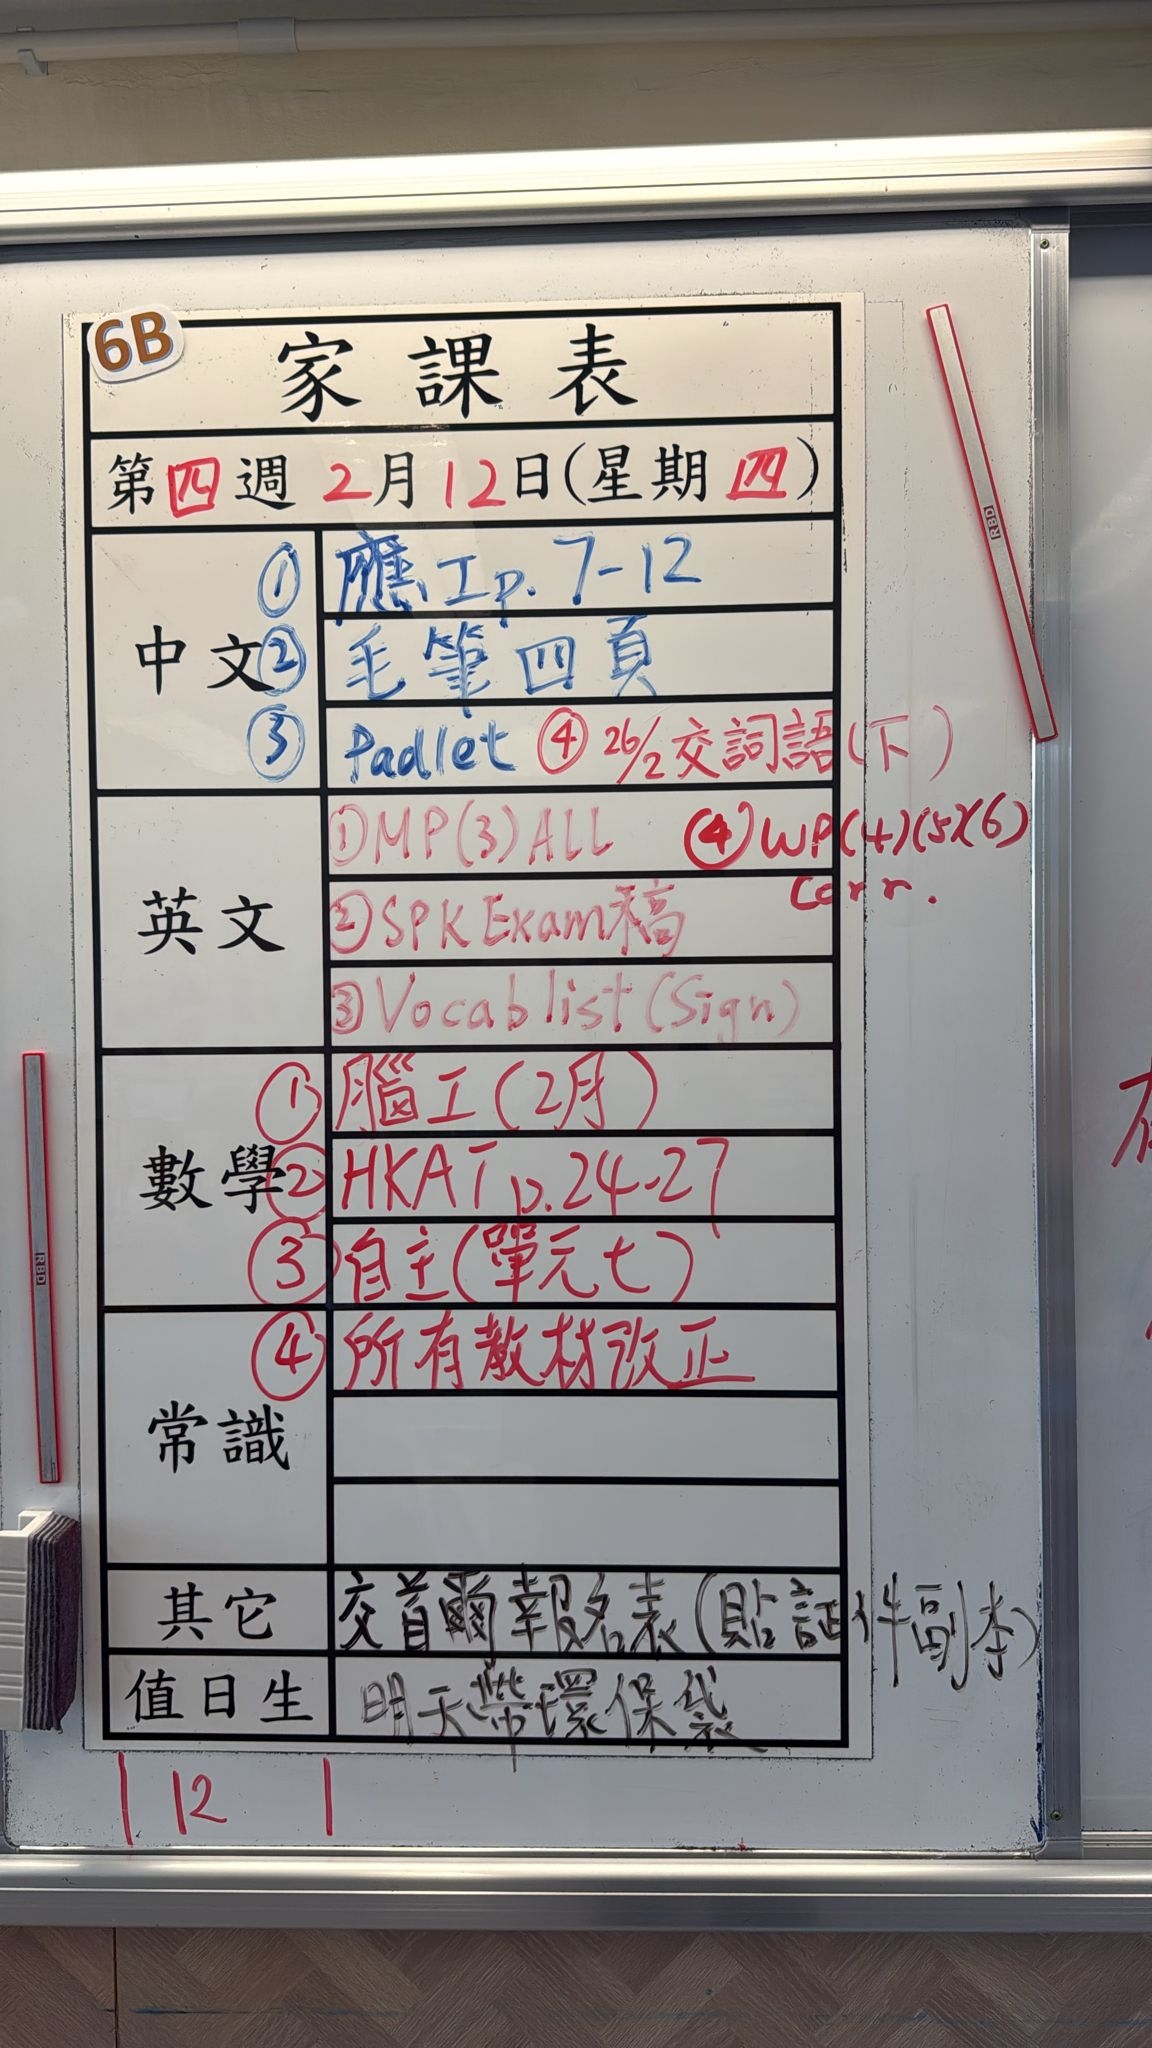 6B
家課表
第四週 2月12日(星期四)
中文
① 應工p. 7-12
② 毛筆四頁
③ Padlet ④ 26/2交詞語(下)
英文
①MP(3)ALL ④WP(4)(5)(6)
corr.
②SPK Exam稿
③Vocab list (Sign)
數學
① 腦工(2月)
② HKAT p.24-27
③ 自主(單元七)
④ 所有教材改正
常識
其它 交首爾報名表(貼証件副本)
值日生 明天帶環保袋
12
RBD
RBD